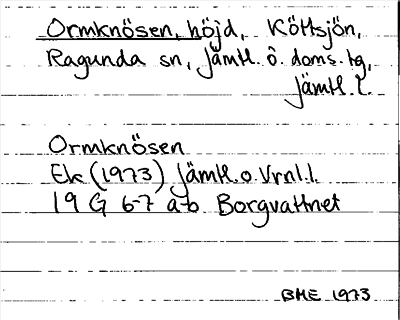 Ormknösen, höjd, Köttsjön,
Ragunda sn, Jämtl. ö. doms. tg,
Jämtl. l.
Ormknösen
Ek (1973) Jämtl. o. Vrnl. l.
19 G 6-7 a-b Borgvattnet
BME 1973